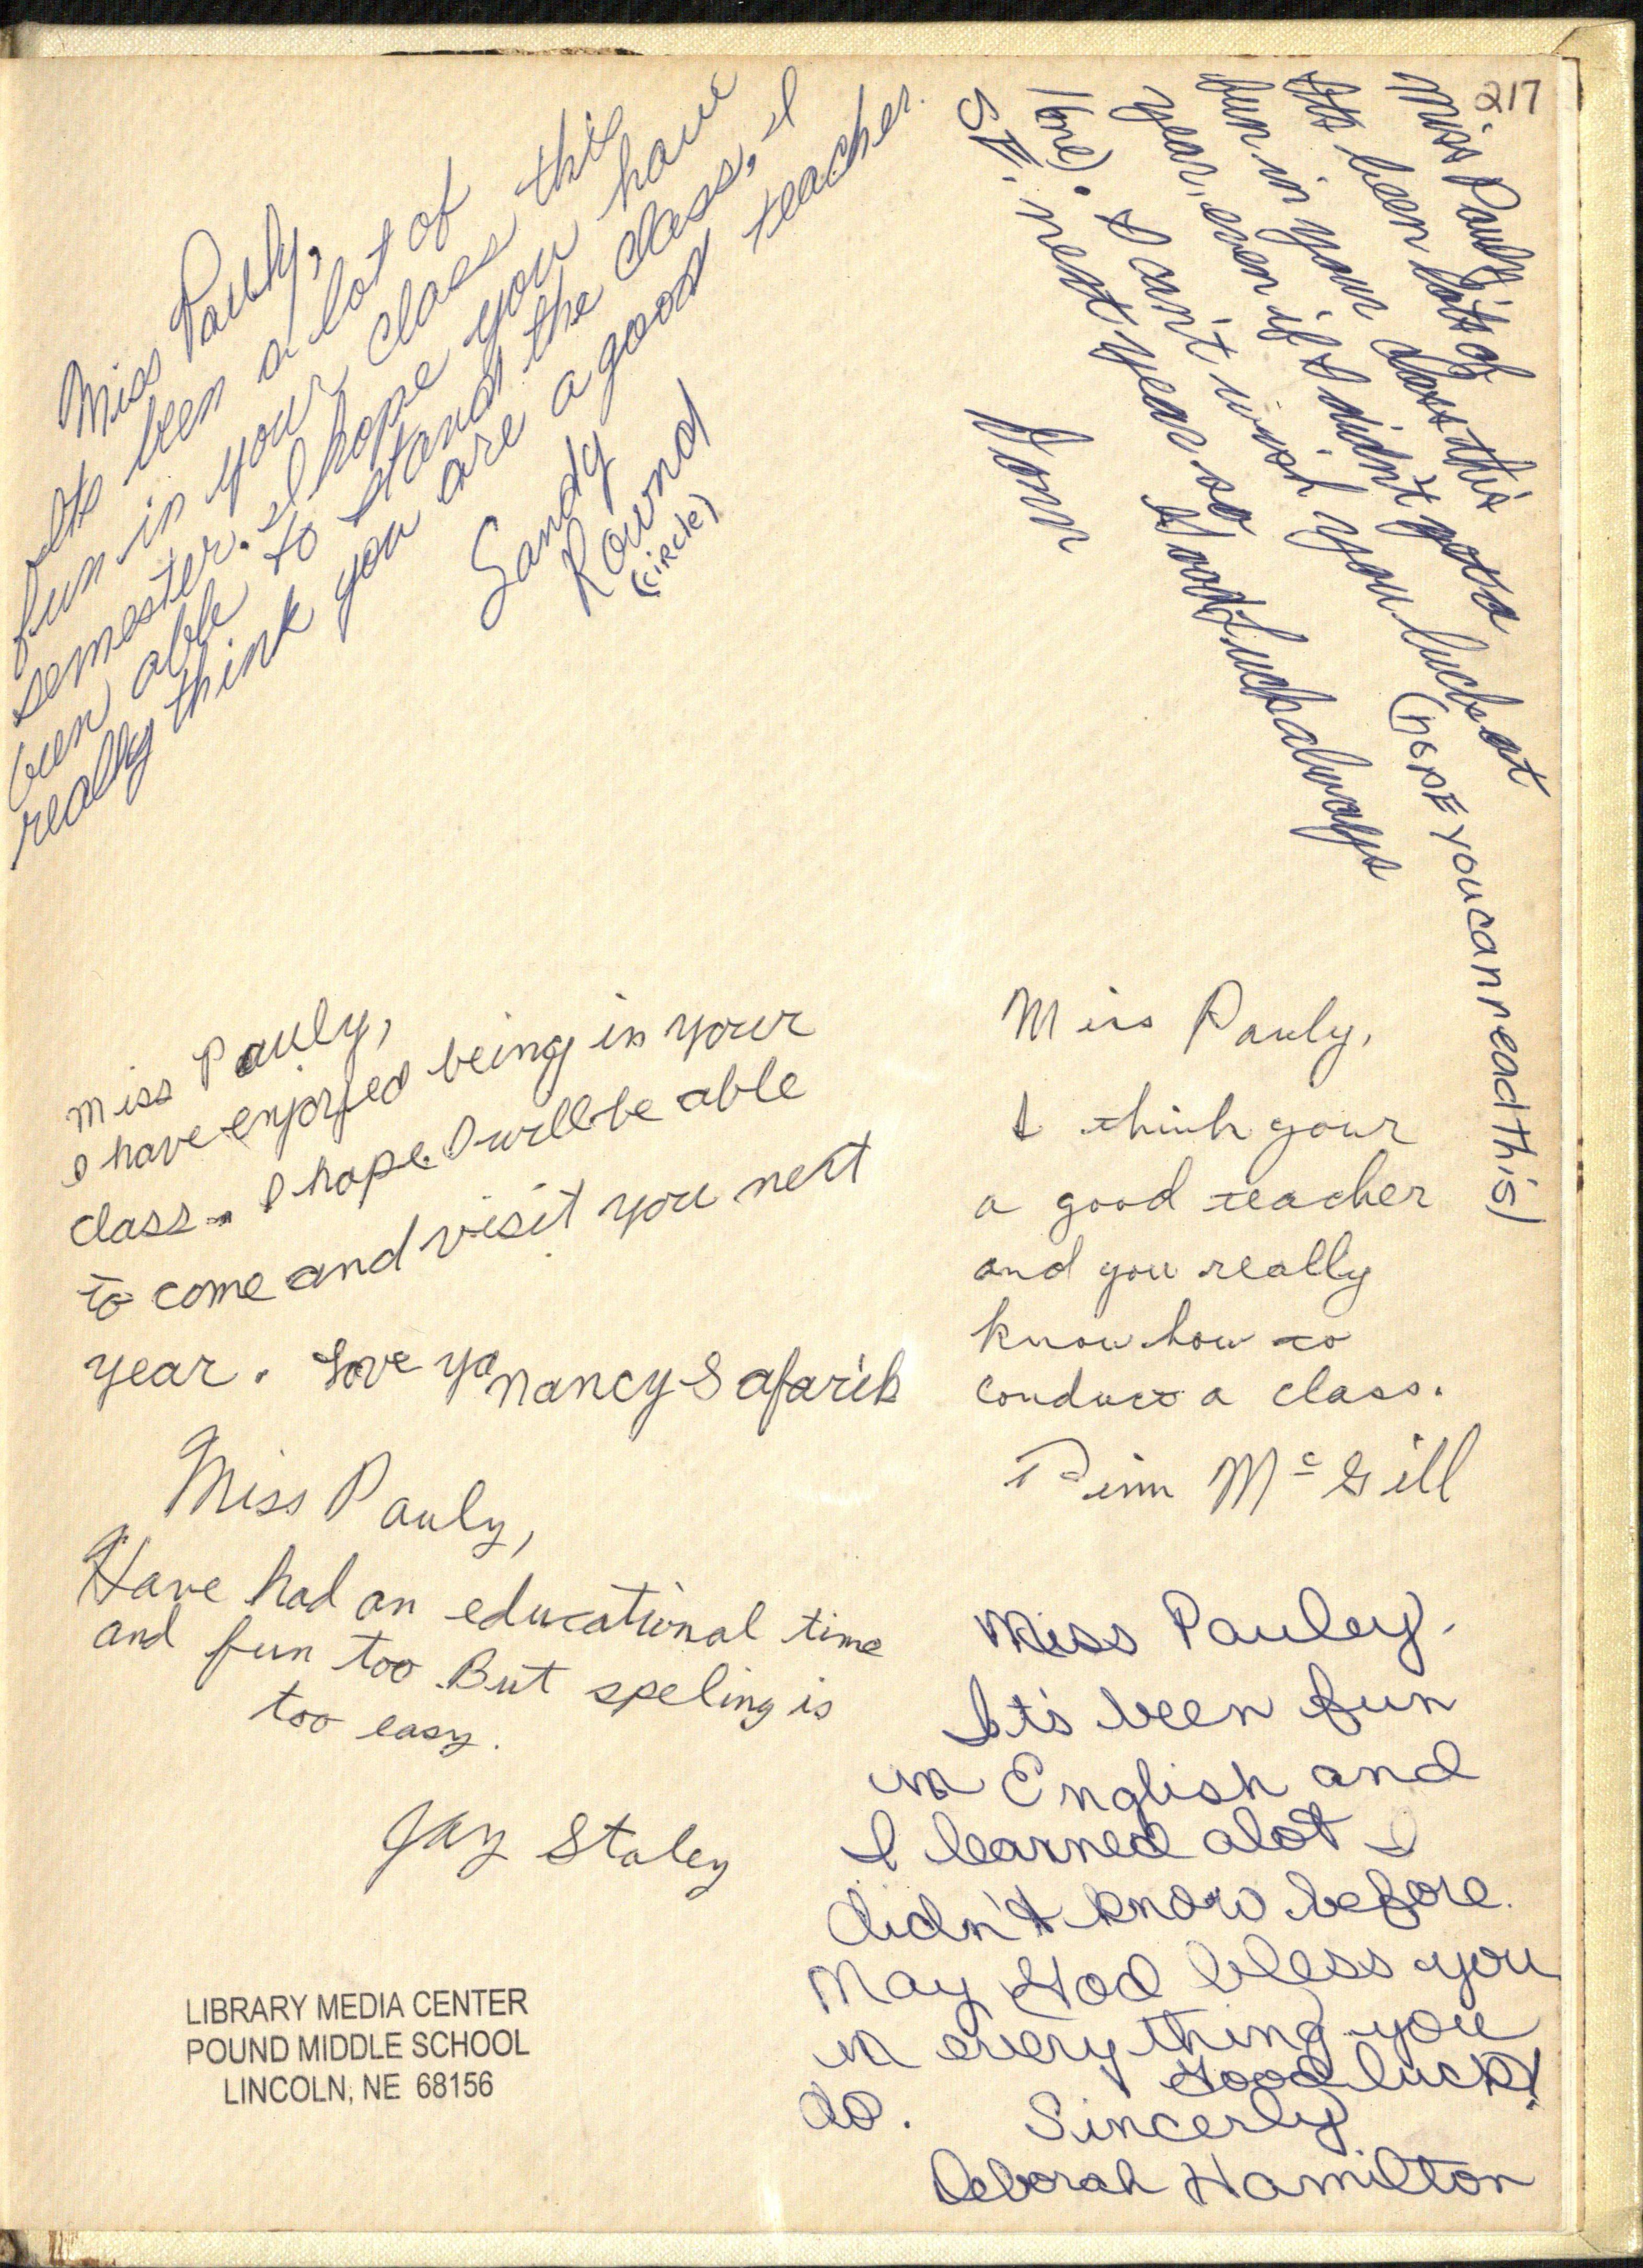 217
Miss Pauly,
Its been a lot of
fun in your class this
semester. I hope you have
been able to stand the class, I
really think you are a good teacher.
Sandy
Round
(CIRCLE)
Miss Pauly,
Its been lots of
fun in your class this
year, even if I didn't
(one). I can't wish you luck at
S.E. next year so
Good Luck always
(HOPE you can read this)
Miss Pauly,
I have enjoyed being in your
class. I hope I will be able
to come and visit you next
year. Love ya Nancy Safarik
Miss Pauly,
I think your
a good teacher
and you really
know how to
conduct a class.
McGill
Miss Pauly,
Have had an educational time
and fun too. But speling is
too easy.
Jay Staley
Miss Pauley,
It's been fun
in English and
I learned alot I
didn't know before.
May God bless you
in everything you
do. Good luck!
Sincerly,
Deborah Hamilton
LIBRARY MEDIA CENTER
POUND MIDDLE SCHOOL
LINCOLN, NE 68156